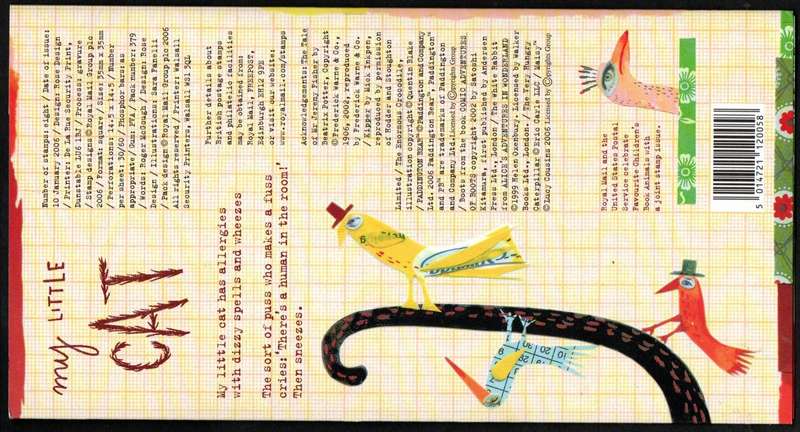 my LITTLE
CAT
My little cat has allergies
with dizzy spells and wheezes
The sort of puss who makes a fuss
cries: 'There's a human in the room!'
Then sneezes.
Number of stamps: eight / Date of issue:
10 January 2006 / Design: Rose Design
/ Printer: De La Rue Security Print,
Dunstable LU6 1BJ / Process: gravure
/ Stamp designs © Royal Mail Group plc
2006 / Format: square / Size: 35mm x 35mm
/ Perforations: 14.5 x 14.5 / Number
per sheet: 30/60 / Phosphor bars: as
appropriate / Gum: PVA / Pack number: 379
/ Words: Roger McGough / Design: Rose
Design / Illustration: Sara Fanelli
/ Pack design © Royal Mail Group plc 2006
All rights reserved / Printer: Walsall
Security Printers, Walsall WS1 3QL
Further details about
British postage stamps
and philatelic facilities
may be obtained from:
Royal Mail, FREEPOST,
Edinburgh EH12 9PE
or visit our website:
www.royalmail.com/stamps
Acknowledgements: The Tale
of Mr Jeremy Fisher by
Beatrix Potter, Copyright
© Frederick Warne & Co.,
1906, 2002, reproduced
by Frederick Warne & Co.
/ Kipper, by Mick Inkpen,
reproduced by permission
of Hodder and Stoughton
Limited / The Enormous Crocodile,
illustration copyright © Quentin Blake
/ PADDINGTON BEAR © Paddington and Company
Ltd. 2006 Paddington Bear, Paddington™
and PB™ are trademarks of Paddington
and Company Ltd. Licensed by © Copyrights Group
/ Boots from the book COMIC ADVENTURES
OF BOOTS copyright 2002 by Satoshi
Kitamura, first published by Andersen
Press Ltd., London / The White Rabbit
from ALICE'S ADVENTURES IN WONDERLAND
© 1999 Helen Oxenbury. Licensed by Walker
Books Ltd., London. / The Very Hungry
Caterpillar © Eric Carle LLC / Maisy™
© Lucy Cousins 2006 Licensed by © Copyrights Group
Royal Mail and the
United States Postal
Service celebrate
Favourite Children's
Book Animals with
a joint stamp issue.
5 014721 120058
10
20
30